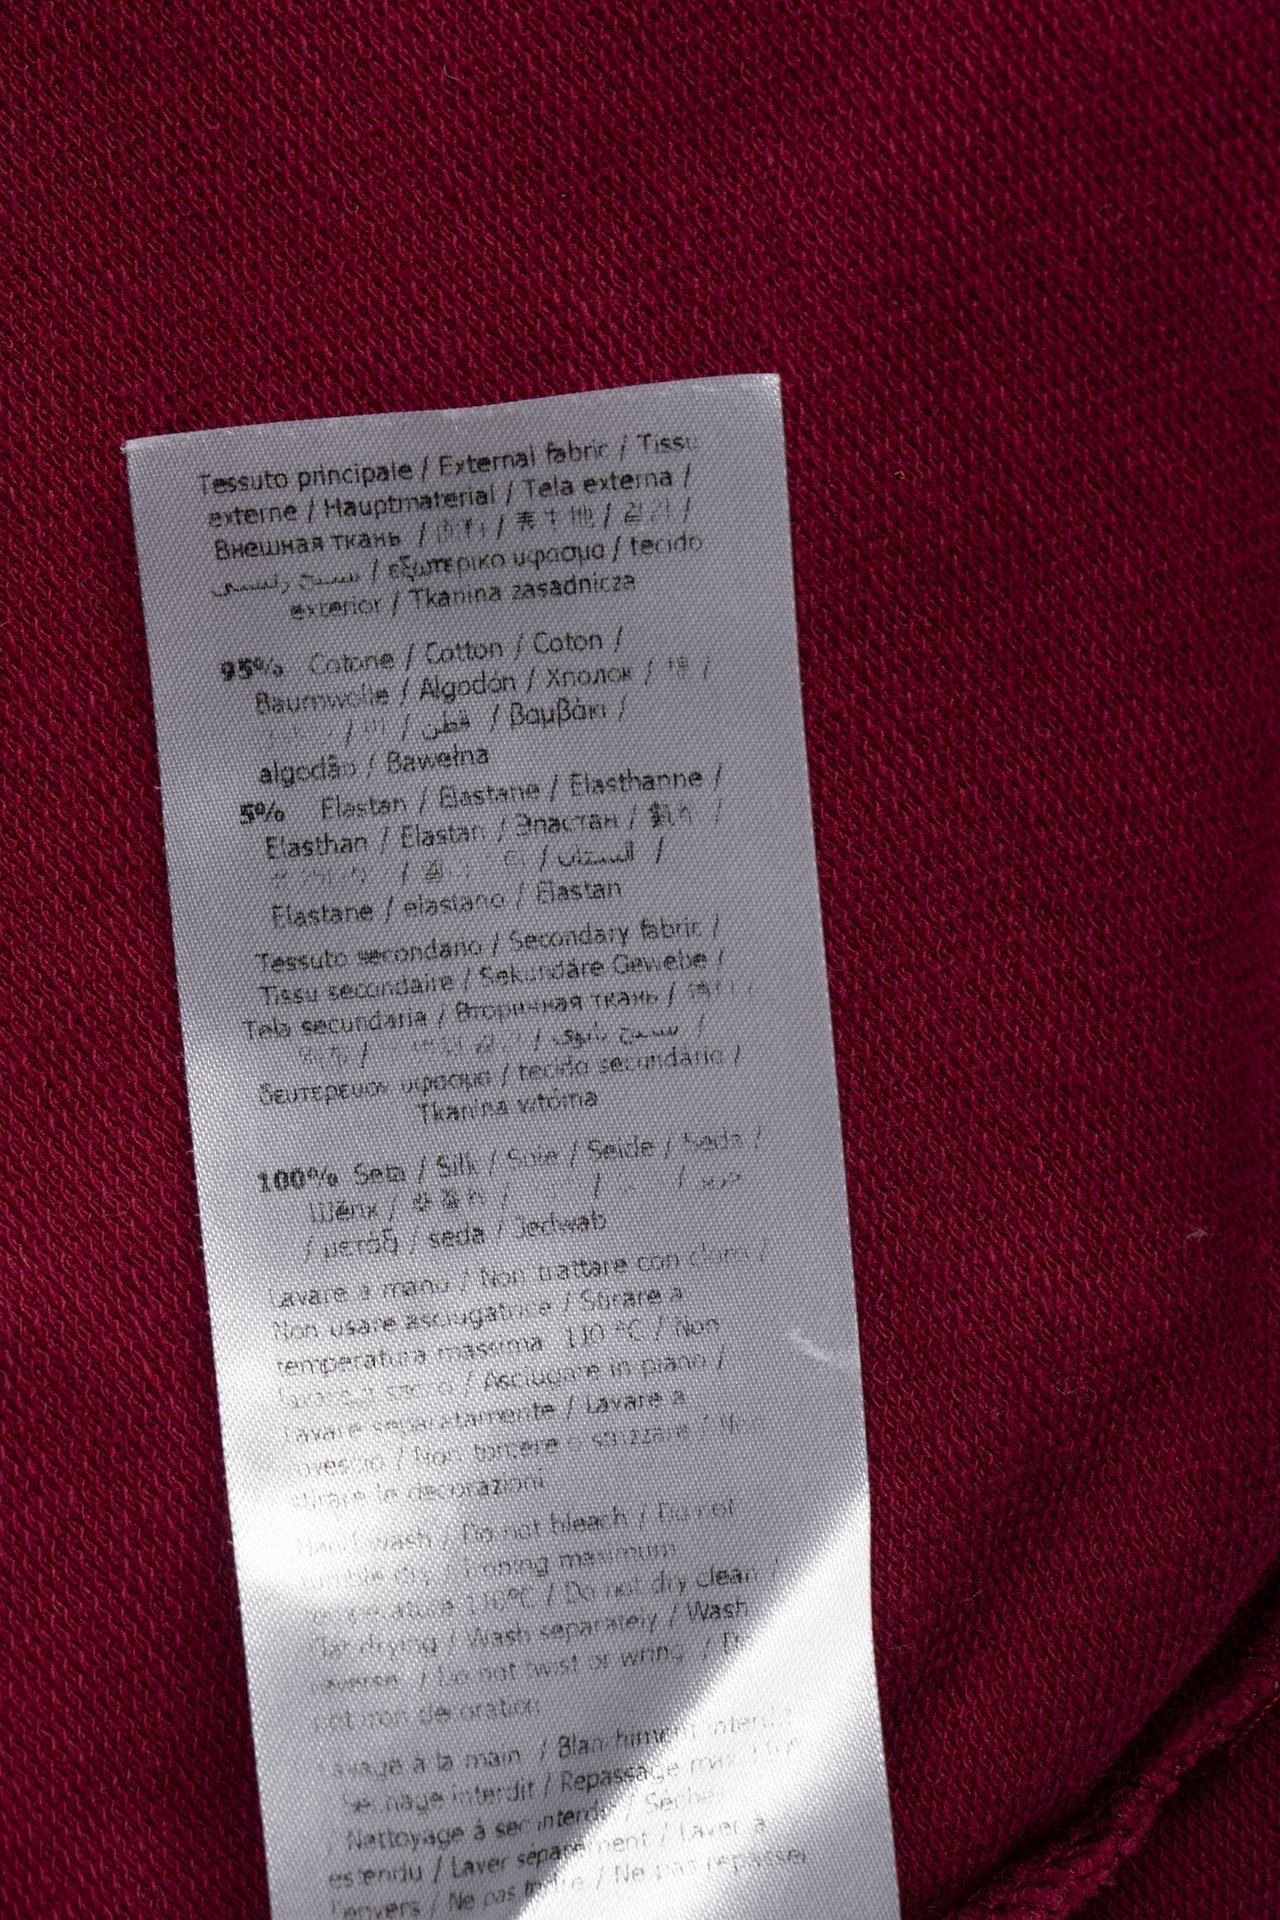 Tessuto principale / External fabric / Tissu
externe / Hauptmaterial / Tela externa /
Внешная ткань / / /
/ εξωτερικο υφασμα / tecido
exterior / Tkanina zasadnicza
95% Cotone / Cotton / Coton /
Baumwolle / Algodón / Хлопок / /
/ / قطن / Βαμβάκι /
algodão / Bawełna
5% Elastan / Elastane / Elasthanne /
Elasthan / Elastan / Эластан / /
/ / الستان /
Elastane / elastano / Elastan
Tessuto secondario / Secondary fabric /
Tissu secondaire / Sekundäre Gewebe /
Tela secundaria / Вторичная ткань /
/ / نسيج ثانوي /
δευτερευον υφασμα / tecido secundário /
Tkanina wtórna
100% Seta / Silk / Soie / Seide / Seda /
Шёлк / / / /
/ μετάξι / seda / Jedwab
Lavare a mano / Non trattare con cloro /
Non usare asciugatrice / Stirare a
temperatura massima 110 °C / Non
lavare a secco / Asciugare in piano /
Lavare separatamente / Lavare a
rovescio / Non torcere o strizzare / Non
stirare le decorazioni
Hand wash / Do not bleach / Do not
tumble dry / Ironing maximum
temperature 110°C / Do not dry clean /
Flat drying / Wash separately / Wash
reverse / Do not twist or wring / Do
not iron decoration
Lavage a la main / Blanchiment interdit
Sechage interdit / Repassage max
/ Nettoyage à sec interdit /
estendu / Laver séparement / Laver à
l'envers / Ne pas tordre / Ne pas repasser